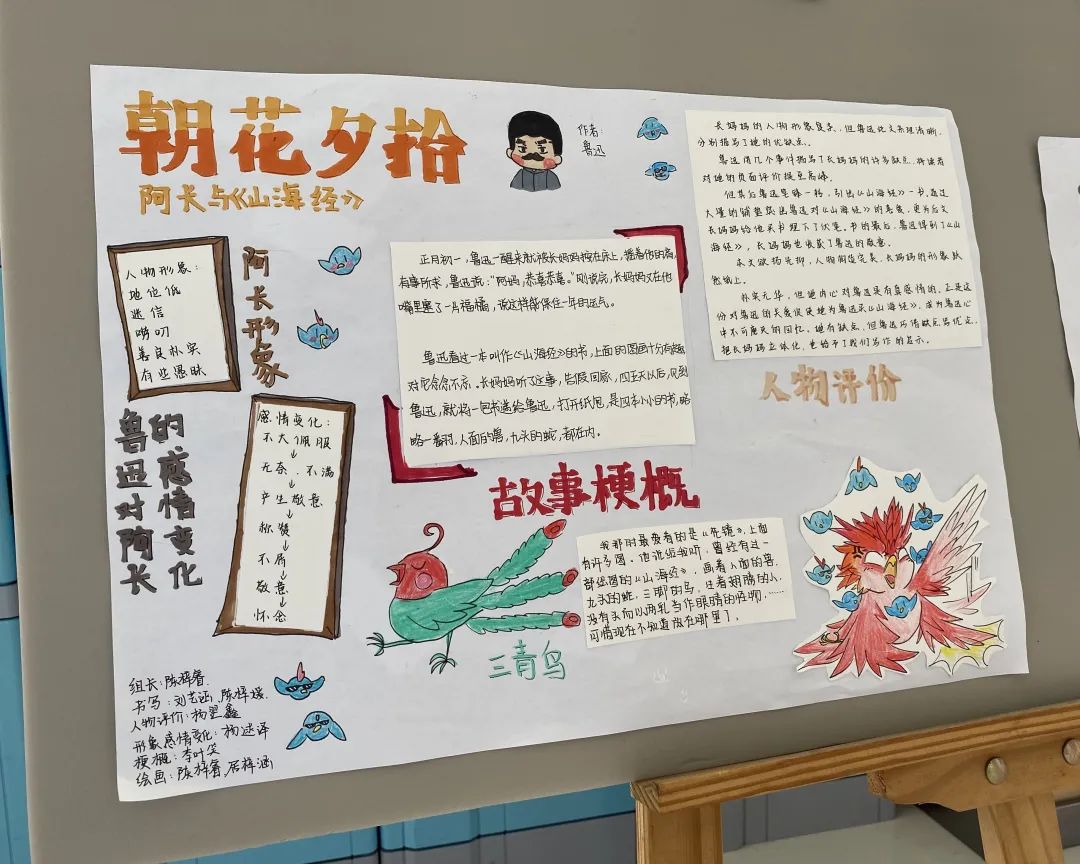 朝花夕拾
阿长与《山海经》
作者：
鲁迅
人物形象：
地位低
迷信
唠叨
善良朴实
有些愚昧
阿长形象
鲁迅对阿长
的感情变化
感情变化：
不大佩服
↓
无奈、不满
↓
产生敬意
↓
称赞
↓
不屑
↓
敬意
↓
怀念
正月初一，鲁迅一醒来就被长妈妈按在床上，摇着他的肩，
有事所求，鲁迅说："阿妈，恭喜恭喜。"刚说完，长妈妈又在他
嘴里塞了一片福橘，说这样能保住一年的运气。
鲁迅看过一本叫作《山海经》的书，上面的图画十分有趣
对它念念不忘。长妈妈听了这事，告假回家，四五天以后，见到
鲁迅，就将一包书递给鲁迅，打开纸包，是四本小小的书，略
略一番时，人面的兽，九头的蛇，都在内。
故事梗概
长妈妈的人物形象复杂，但鲁迅此文条理清晰，
分别描写了她的优缺点。
鲁迅用几个事件描写了长妈妈的许多缺点，将读者
对她的负面评价提至高峰。
但其后鲁迅笔锋一转，引出《山海经》一书，通过
大量的铺垫突出鲁迅对《山海经》的喜爱，更为后文
长妈妈给他买书埋下了伏笔。书的最后，鲁迅得到了《山
海经》，长妈妈也收获了鲁迅的敬意。
本文欲扬先抑，人物刻画完美，长妈妈的形象跃
然纸上。
朴实无华，但她内心对鲁迅是有真感情的，正是这
份对鲁迅的关爱促使她为鲁迅买《山海经》，成为鲁迅心
中不可磨灭的回忆。她有缺点，但鲁迅巧借缺点与优点，
把长妈妈立体化，也给予了我们写作的启示。
人物评价
三青鸟
我那时最爱看的是《花镜》，上面
有许多图。他说给我听，曾经有过一
部绘图的《山海经》，画着人面的兽，
九头的蛇，三脚的鸟，生着翅膀的人，
没有头而以两乳当作眼睛的怪物，……
可惜现在不知道放在哪里了。
组长：陈梓睿
书写：刘艺证，陈梓媛
人物评价：杨堃鑫
形象感情变化：杨述译
梗概：李叶笑
绘画：陈梓睿，居梓涵